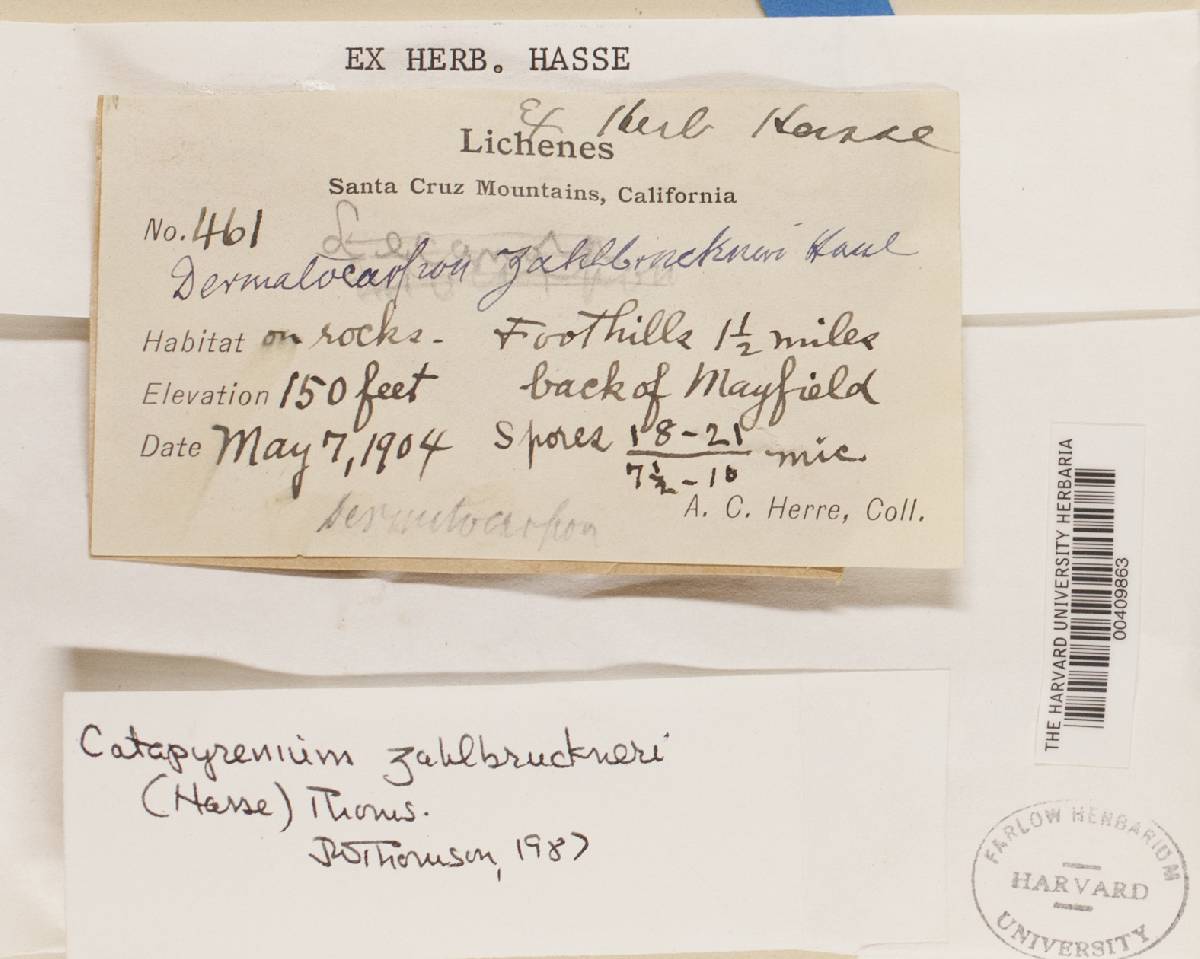 EX HERB. HASSE
Ex Herb Hasse
Lichenes
Santa Cruz Mountains, California
No. 461
Dermatocarpon Zahlbruckneri Hasse
Habitat on rocks. Foothills 1½ miles
Elevation 150 feet back of Mayfield
Date May 7, 1904 Spores 18-21 / 7½-10 mic.
A. C. Herre, Coll.
Dermatocarpon
THE HARVARD UNIVERSITY HERBARIA
00409863
Catapyrenium zahlbruckneri
(Hasse) Thoms.
JWThomson, 1987
FARLOW HERBARIUM
HARVARD
UNIVERSITY